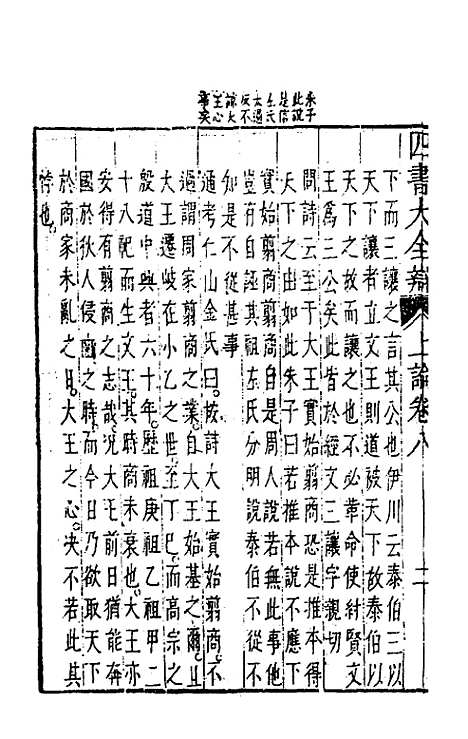 四書大全纂 上論卷八 二
下而三讓之言其公也伊川云泰伯三以
天下讓者立文王則道被天下故泰伯以
天下之故而讓之也不必革命使紂賢文
王爲三公矣此皆於經文三讓字親切
問詩云至于大王實始翦商恐是推本得
天下之由如此朱子曰若推本說不應下
實始翦商翦商自是周人說若無此事他
豈有自誣其祖左氏分明說泰伯不從不
知是不從甚事
通考仁山金氏曰按詩大王實始翦商不
過謂周家翦商之業自大王始基之爾且
大王遷岐在小乙之世至丁巳而高宗之
殷道中興者六十年歷祖庚祖乙祖甲二
十八祀而生文王其時商未衰也大王亦
安得有翦商之志哉况大王前日猶能奔
國於狄人侵之時而今日乃欲取天下
於商家未亂之日大王之心決不若此其
悖也
朱子
此說
是信
左氏
太過
反不
諒大
王心
事矣